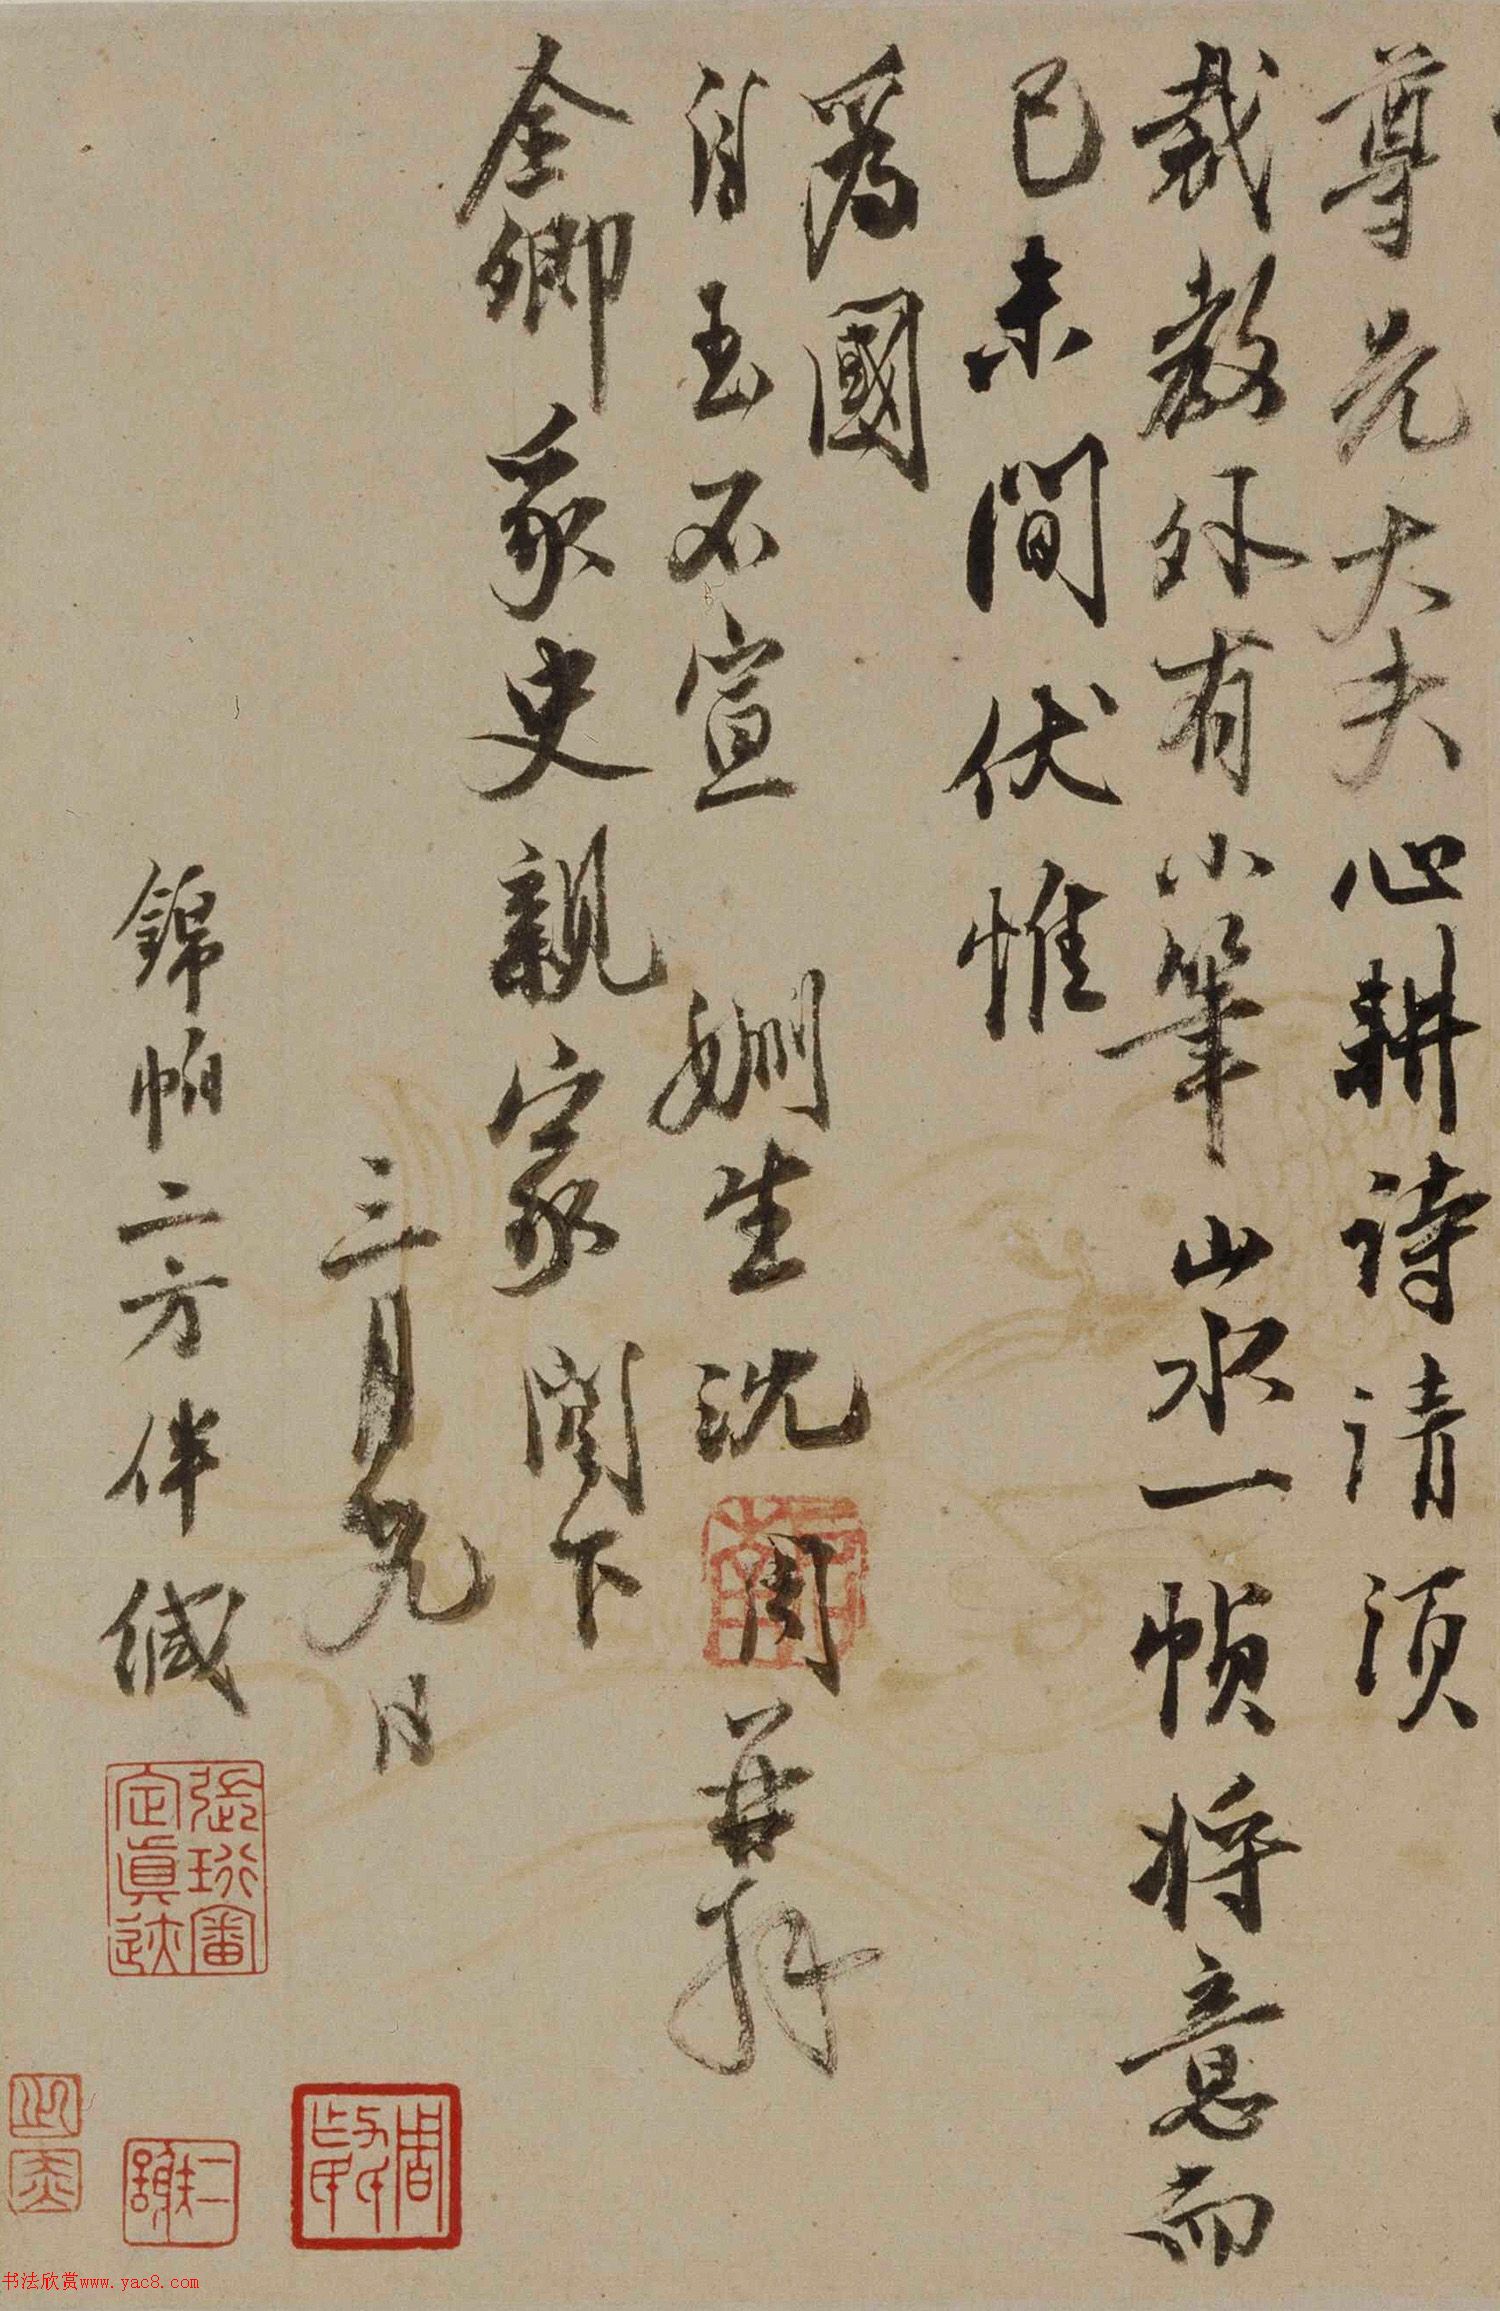 尊兄大夫心耕詩請須
裁教外有小筆山水一幀將意而
已未間伏惟
為國
自玉不宣 姻生沈周再拜
全卿家史親家閣下
三月九日
錦帕二方伴緘
張珩審定真跡
书法欣赏www.yac8.com